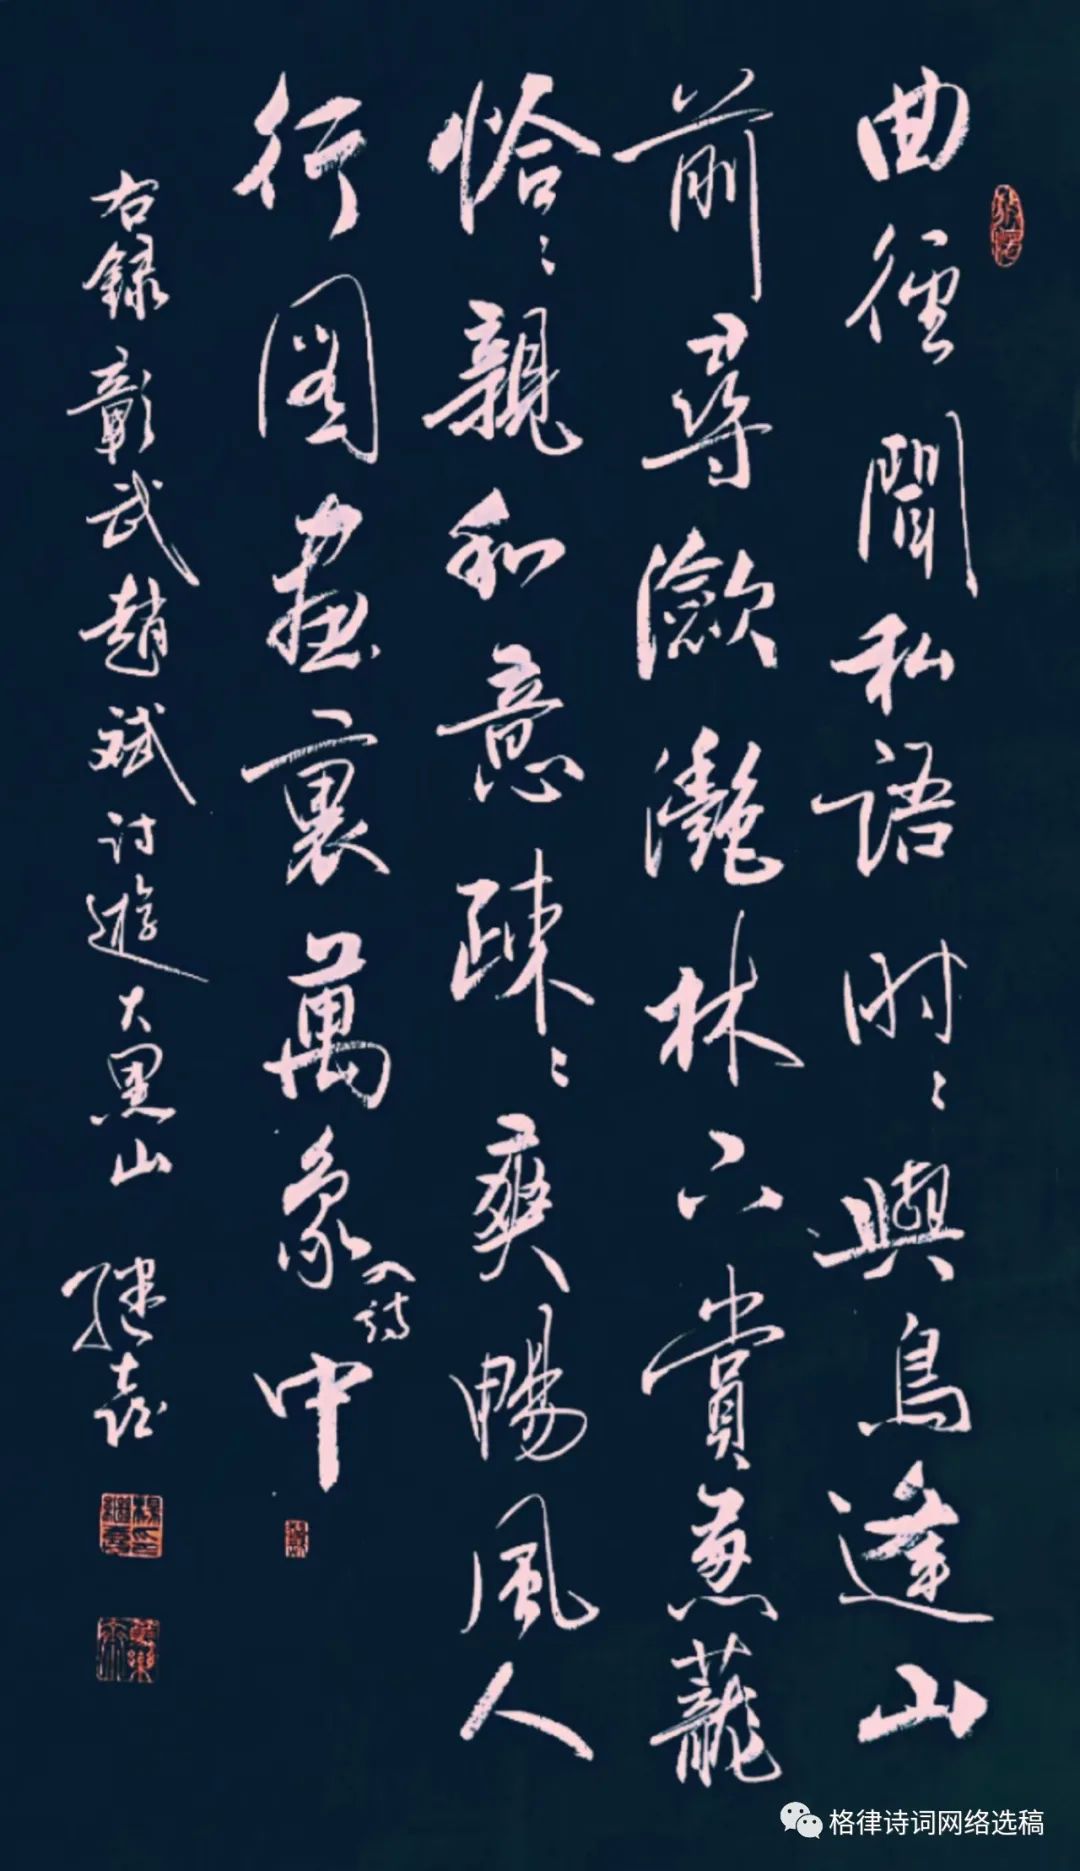 曲徑聞私語时〻與鳥逢山
前尋瀲灧林下賞葱蘢
恰〻親和意疎〻爽暢風人
行图畫裏萬象中
入詩
右録彰武趙斌詩遊大黑山 继
格律诗词网络选稿